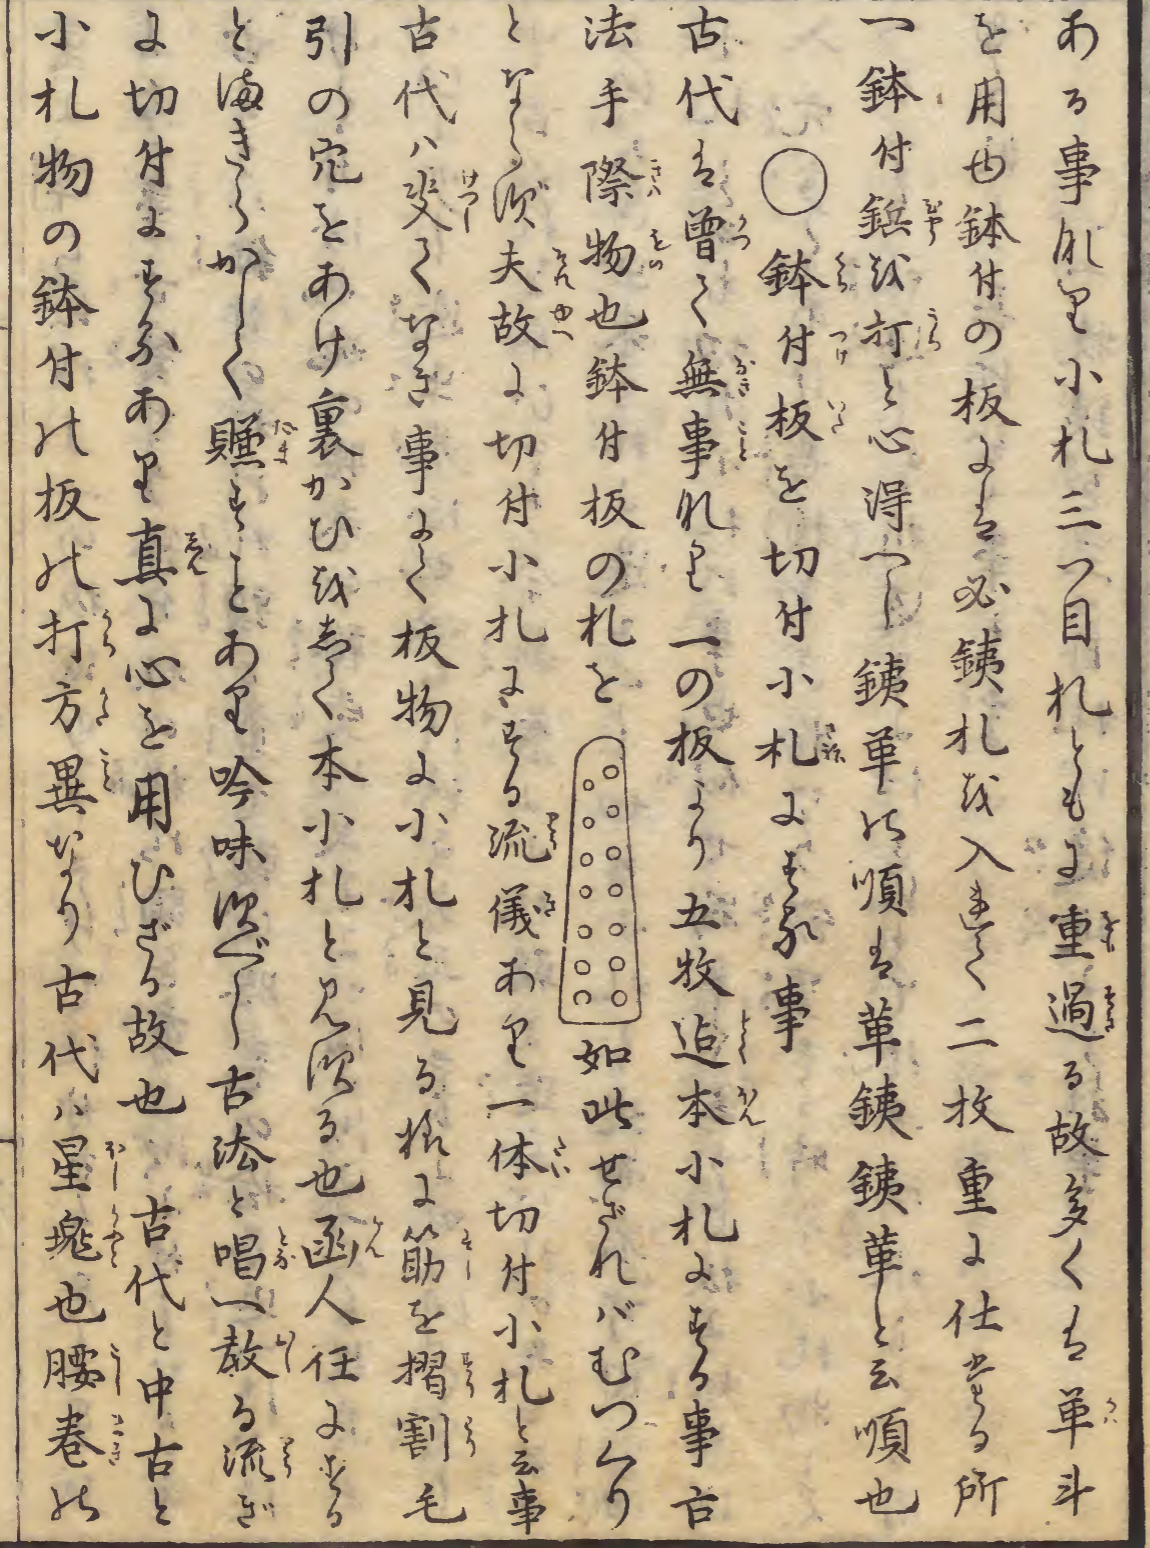 ある事なり小札三つ目札ともに重過る故多くは革斗
を用也鉢付の板には必鉄札を入まて二枚重に仕立る所
一鉢付鋲を打と心得へし鉄革の順は革鉄鉄革と云順也
○鉢付板を切付小札にする事
古代は曽て無事なり一の板より五牧迄本小札にする事古
法手際物也鉢付板の札を如此せざればむつくり
とならず夫故に切付小札にする流儀あり一体切付小札と云事
古代ハ決てなき事にて板物に小札と見る様に筋を摺割毛
引の穴をあけ裏かひを敷て本小札と見する也函人任にする
とまきらかして賺すことあり吟味すべし古法と唱へ教る流ぎ
に切付にするあり真に心を用ひざる故也古代と中古と
小札物の鉢付の板の打方異なり古代ハ星塊也腰巻の